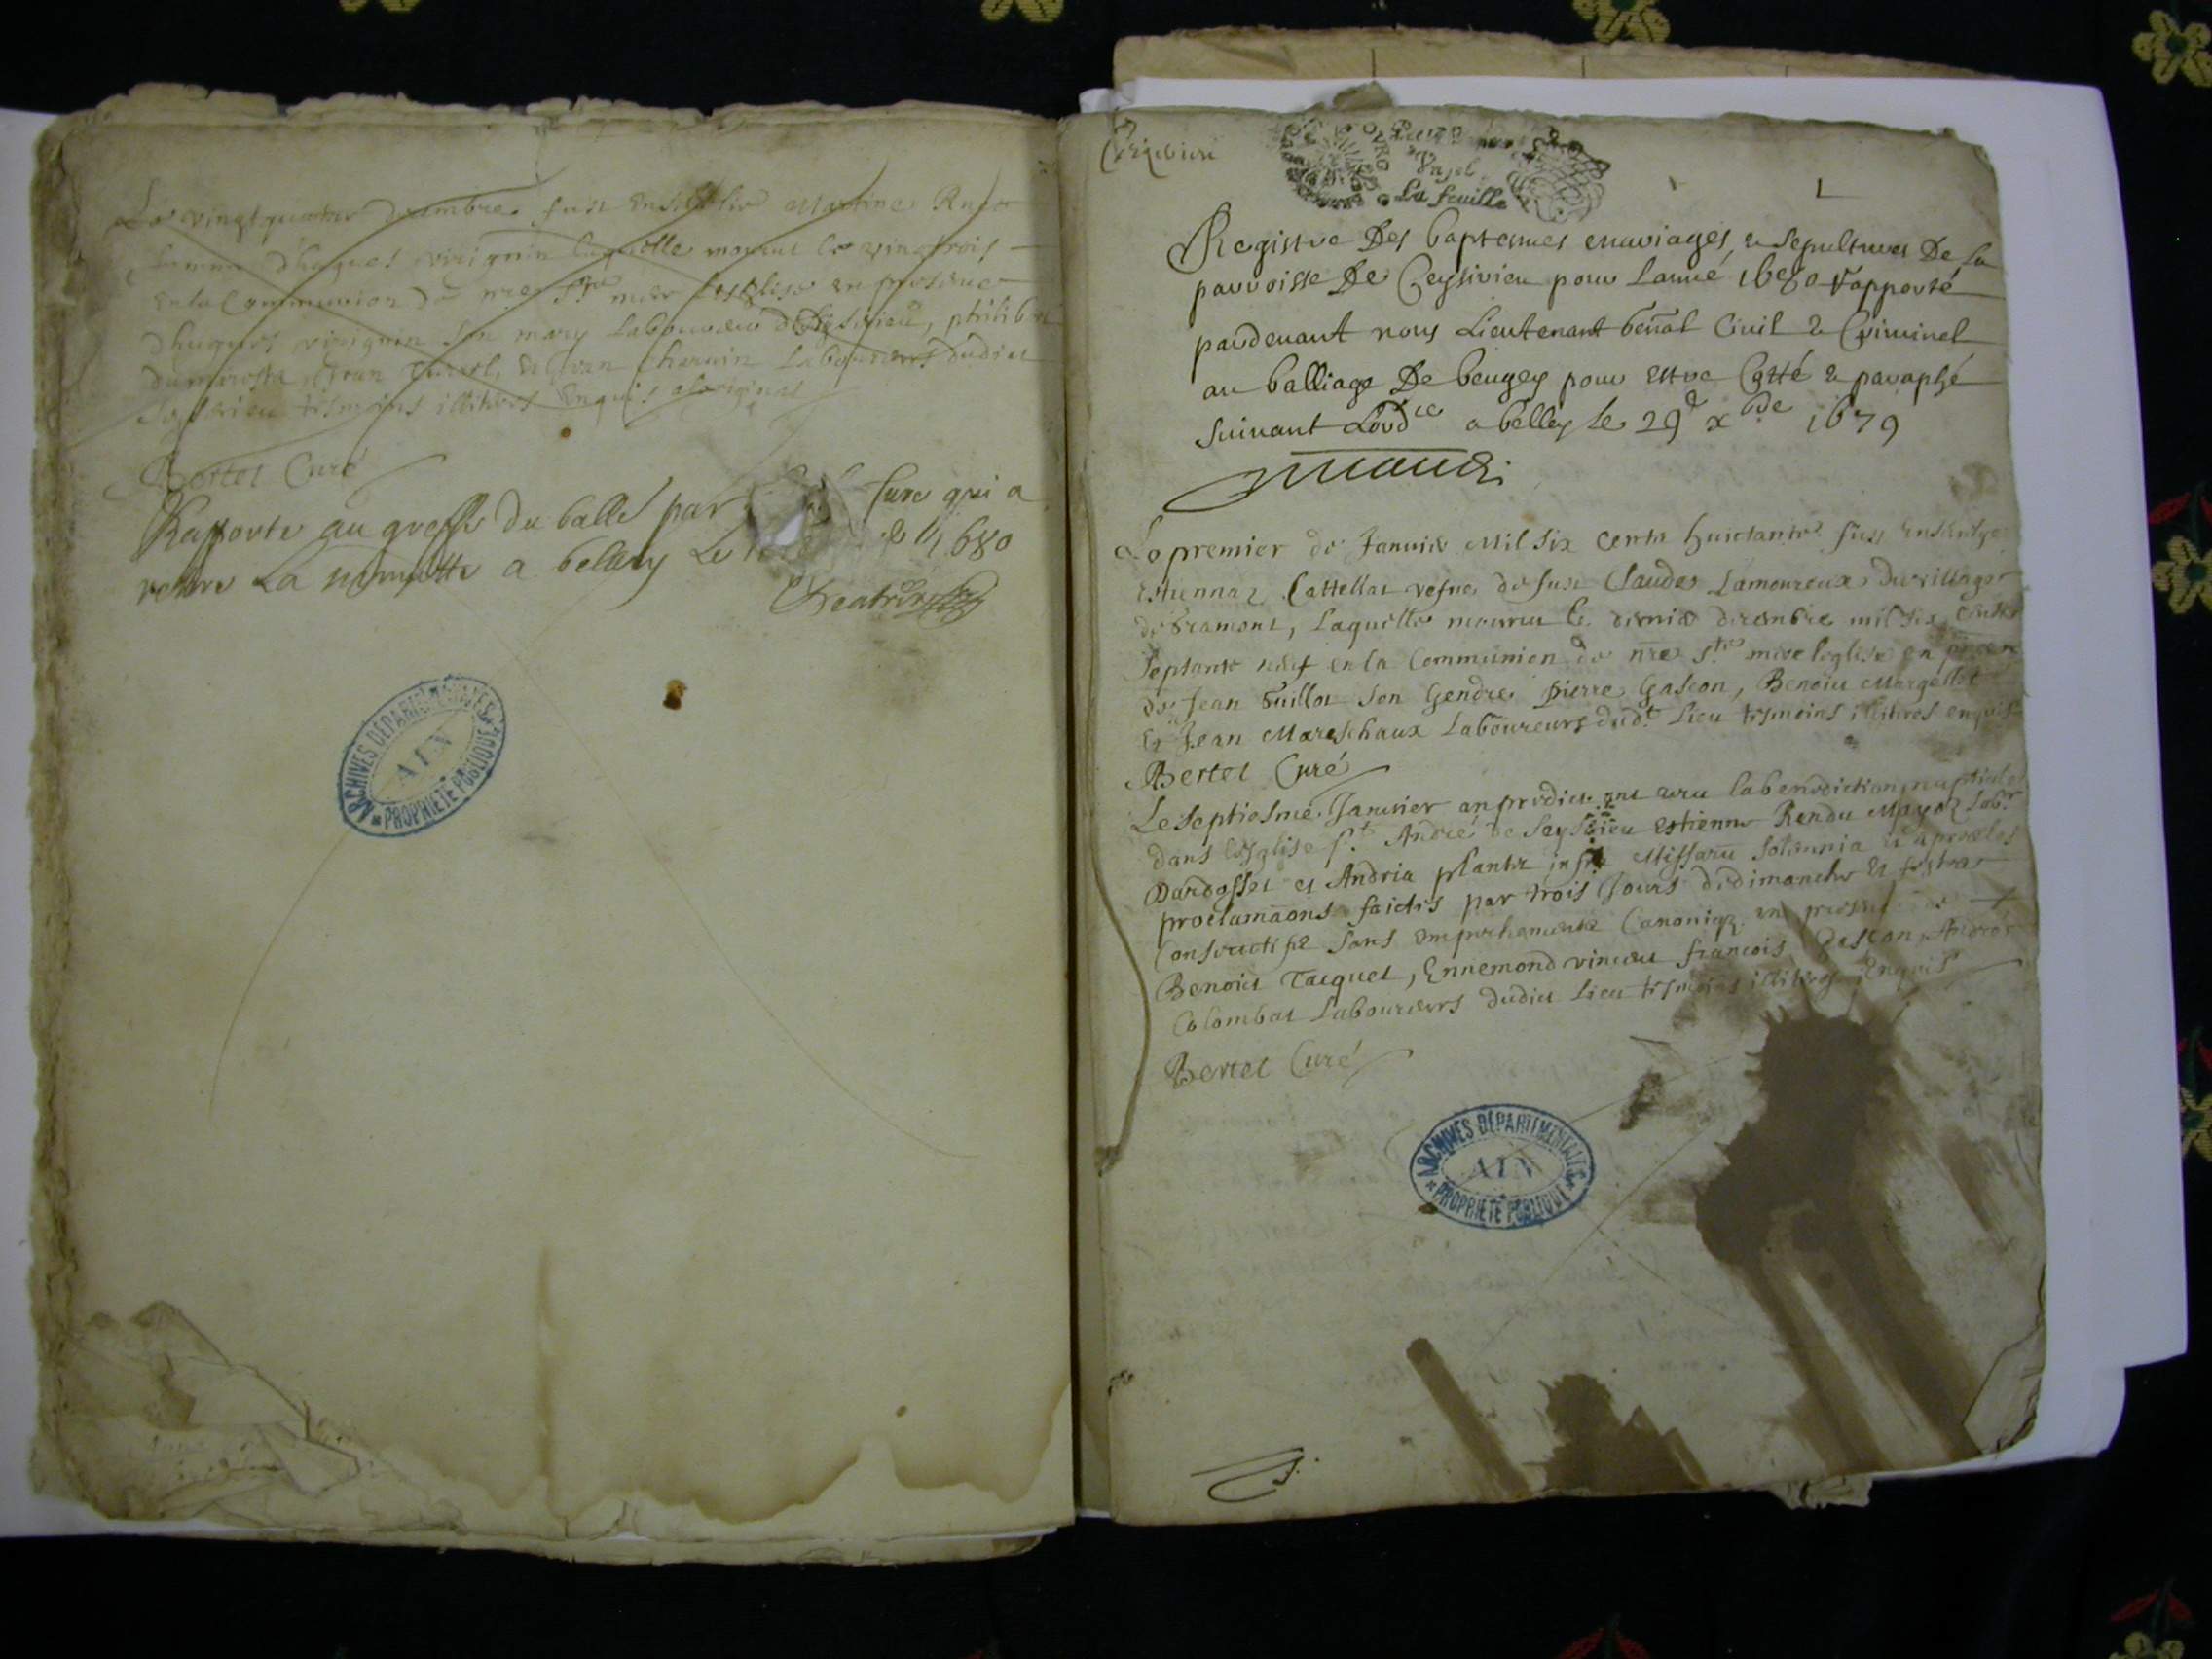 Le vingt quatre decembre fust ensepvelie Martine
femme d'hugues virignin laquelle mourut le vingtrois
en la Communion de nre Ste mere leglise en presence
d'hugues virignin son mary laboureur de Ceyssirieu, philibert
Jean Et Jean laboureurs dudict
tesmoins illiteres enquis
Bertet Curé
Rapporte au greffe du balle par curé qui a
retiré La minutte a belley Le 1680
ARCHIVES DÉPARTEMENTALES
AIN
PROPRIÉTÉ PUBLIQUE
un sol
La feuille
1
Registre Des baptesmes mariages, & sepultures De la
parroisse De Ceyssirieu pour Lanné 1680 rapporté
pardevant nous Lieutenant genal Civil & Criminel
au balliage De beugey pour estre Cotté & paraphé
suivant Lordce a belley le 29e xbre 1679
Le premier de Janvier Mil six cents huictante fust ensevelye
Estiennaz Cattellat vefve de fust Claude Lamoureux du village
de framont, laquelle mourut le dernier decembre mil six cents
septante neuf en la Communion de nre Ste mere leglise en
de Jean Guillot son Gendre pierre Gascon, Benoict Margellet
Et Jean Mareschaux Laboureurs dudt Lieu tesmoins illiteres enquis
Bertet Curé
Le septiesme Janvier an predict ont receu la benediction nuptiale
dans lesglise St André de Seyssirieu Estienne Rendu Mayoz labr
Dardosset et Andria plantaz infra Missaru solemnia et apres les
proclamaons faictes par trois Jours de dimanche et festes
consecutifz sans empechements Canoniqz en presence de
Benoict Tacquet, Ennemond vincent francois Gascon, André
Colombat Laboureurs dudict Lieu tesmoins illiteres Enquis
Bertet Curé
ARCHIVES DÉPARTEMENTALES
AIN
PROPRIÉTÉ PUBLIQUE